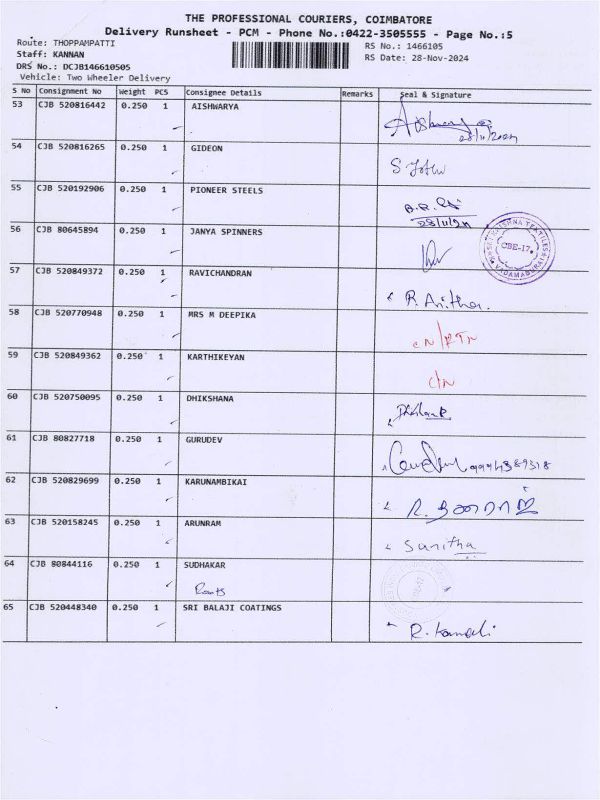 THE PROFESSIONAL COURIERS, COIMBATORE
Delivery Runsheet - PCM - Phone No.:0422-3505555 - Page No.:5
Route: THOPPAMPATTI
RS No.: 1466105
Staff: KANNAN
RS Date: 28-Nov-2024
DRS No.: DCJB146610505
Vehicle: Two Wheeler Delivery
S No Consignment No Weight PCS Consignee Details Remarks Seal & Signature
53 CJB 520816442 0.250 1 AISHWARYA
28/11/2024
54 CJB 520816265 0.250 1 GIDEON
55 CJB 520192906 0.250 1 PIONEER STEELS
28/11/24
56 CJB 80645894 0.250 1 JANYA SPINNERS
CBE-17.
57 CJB 520849372 0.250 1 RAVICHANDRAN
R. Anitha.
58 CJB 520770948 0.250 1 MRS M DEEPIKA
CN/RTN
59 CJB 520849362 0.250 1 KARTHIKEYAN
C/N
60 CJB 520750095 0.250 1 DHIKSHANA
61 CJB 80827718 0.250 1 GURUDEV
9994389318
62 CJB 520829699 0.250 1 KARUNAMBIKAI
63 CJB 520158245 0.250 1 ARUNRAM
Sanitha
64 CJB 80844116 0.250 1 SUDHAKAR
65 CJB 520448340 0.250 1 SRI BALAJI COATINGS
R. Kamali